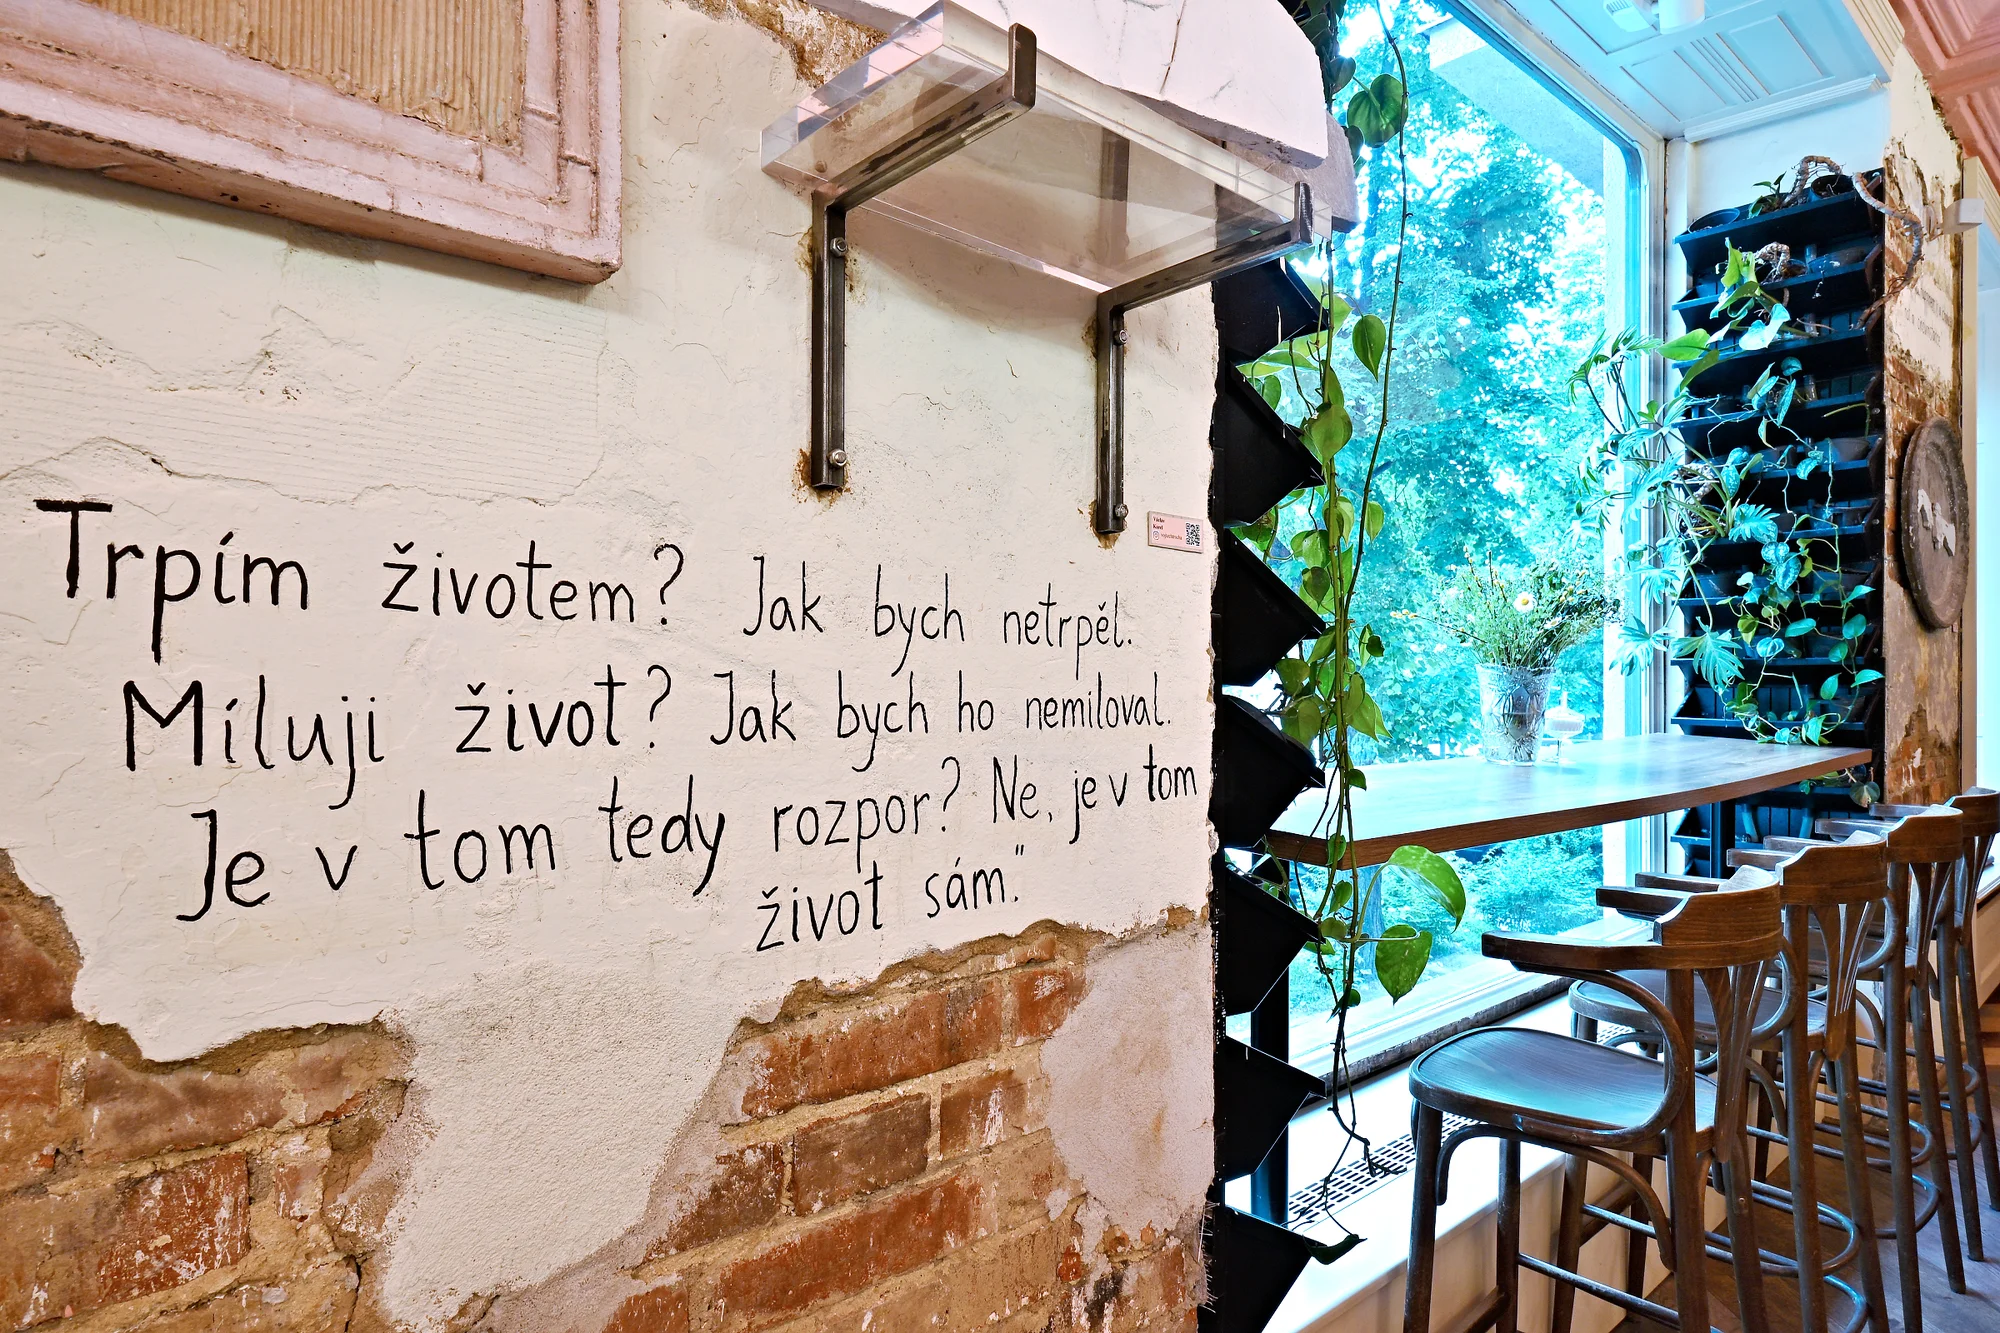 Trpím životem? Jak bych netrpěl.
Miluji život? Jak bych ho nemiloval.
Je v tom tedy rozpor? Ne, je v tom
život sám."
Václav
Korel